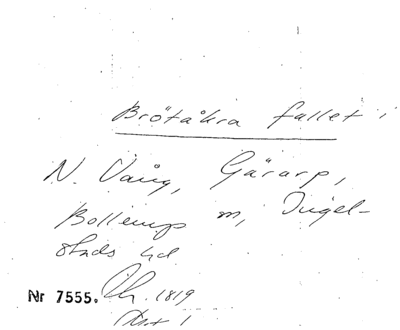 Brötåkra fallet i
N. Vång, Gärarp,
Bollerup m, Ingel-
stads hd
Nr 7555. 1819